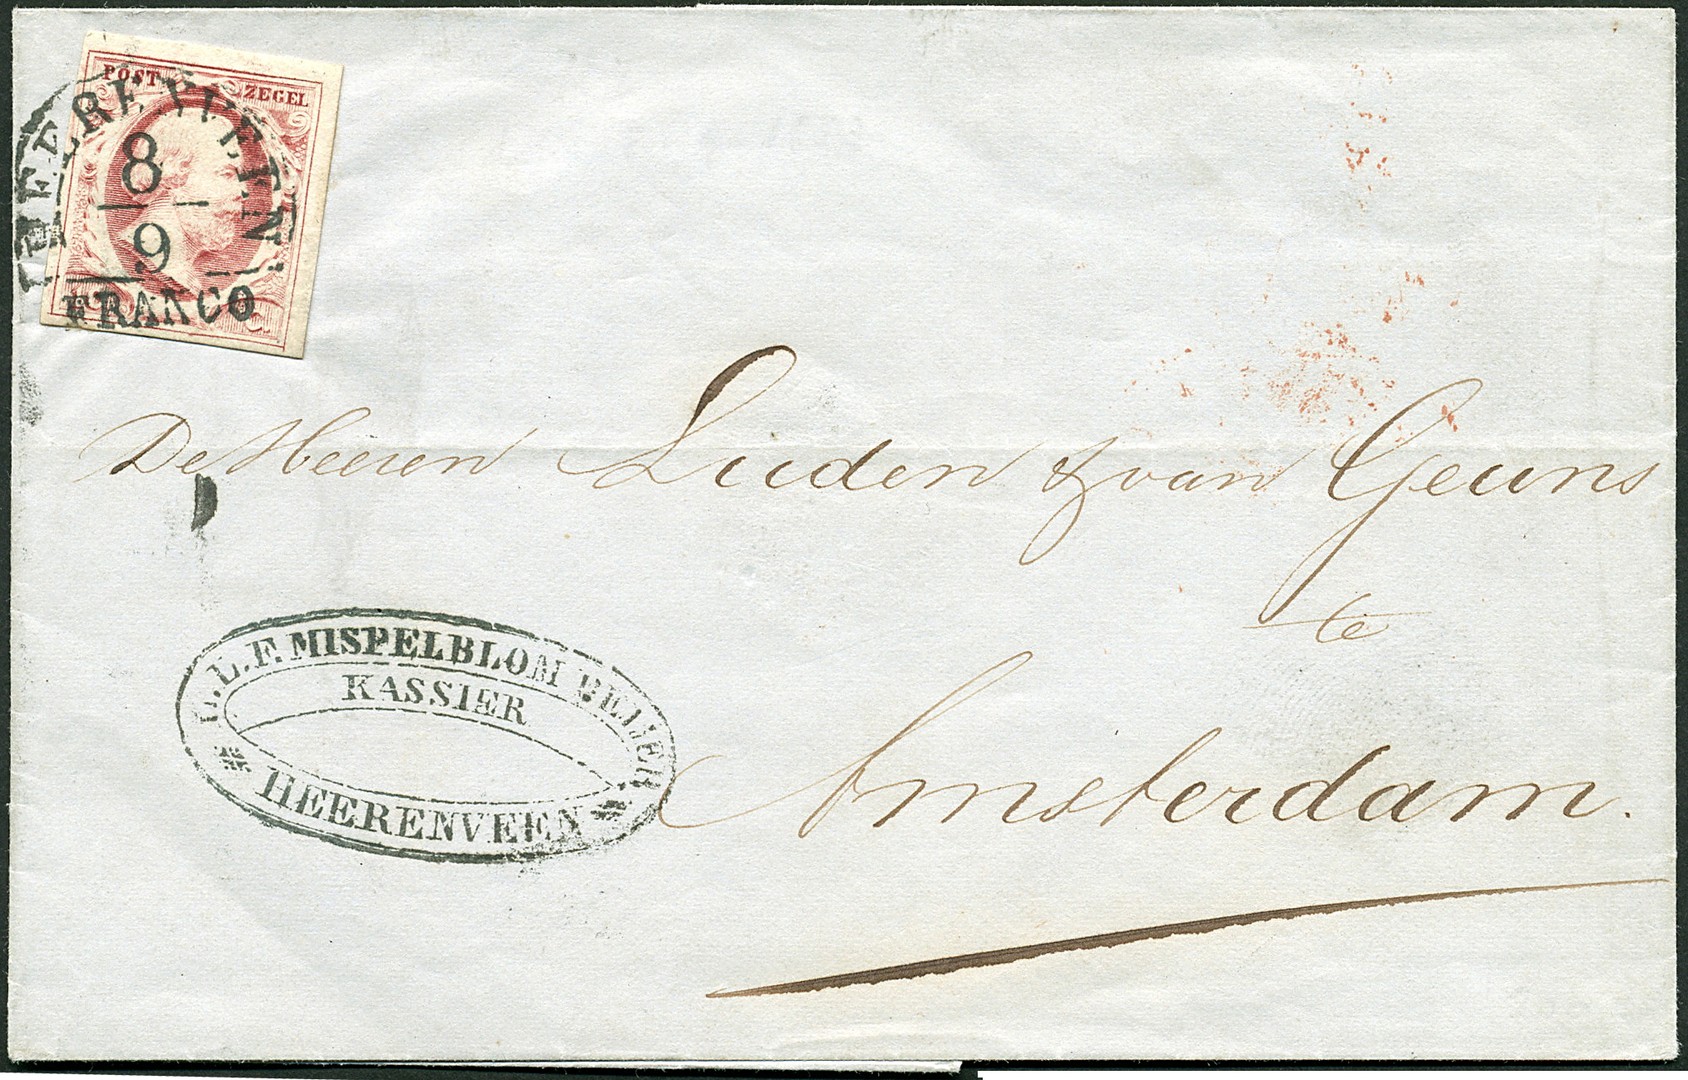 POST ZEGEL
HEERENVEEN
8
9
FRANCO
De Heeren Luden & van Geuns
te
Amsterdam.
L.F. MISPELBLOM BEIJER
KASSIER
HEERENVEEN